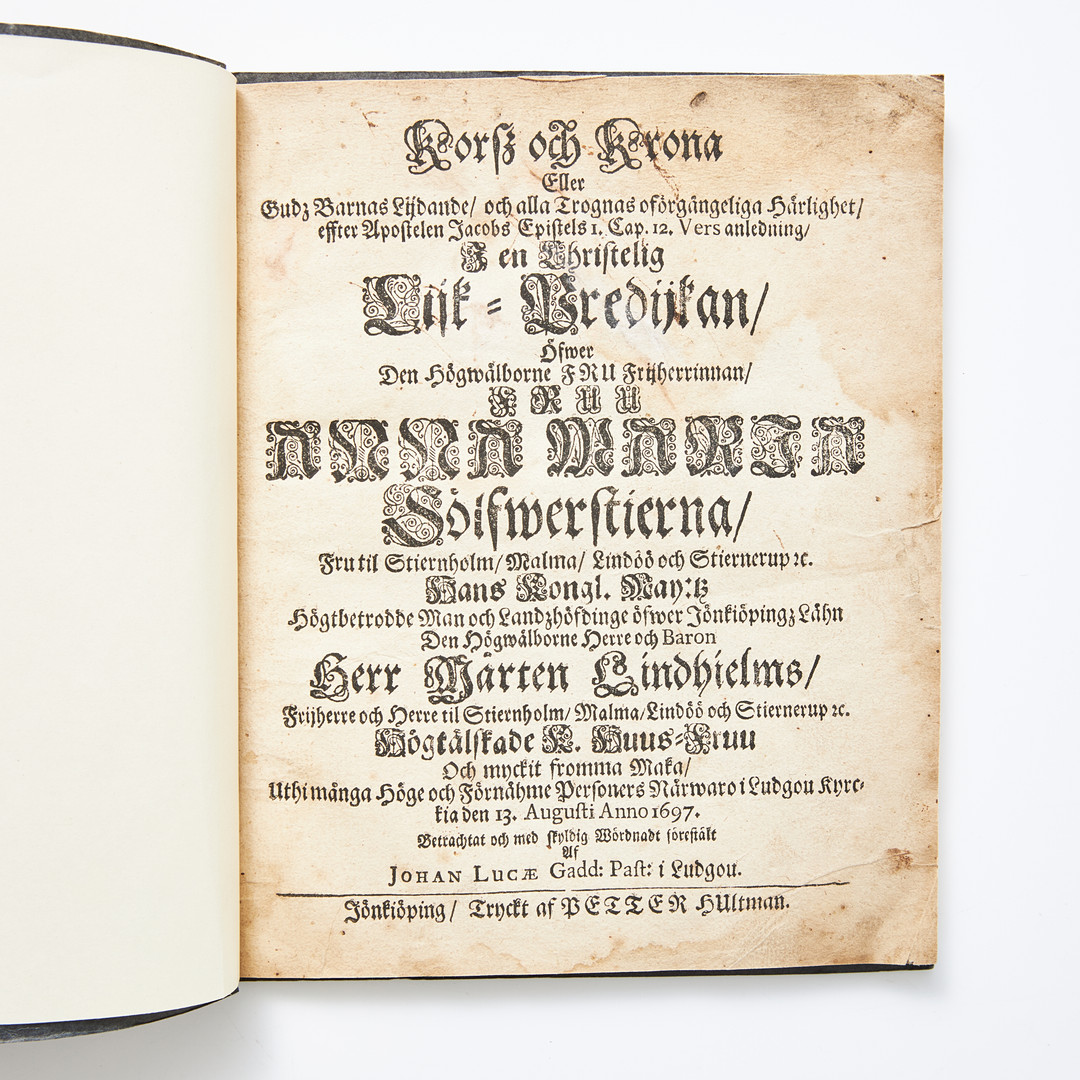 Korsz och Krona
Eller
Gudz Barnas Lijdande/ och alla Trognas oförgängeliga Härlighet/
effter Apostelen Jacobs Epistels 1. Cap. 12. Vers anledning/
I en Christelig
Lijk-Predijkan/
Öfwer
Den Högwälborne FRU Frijherrinnan/
FRUU
ANNA MARIA
Sölfwerstierna/
Fru til Stiernholm/ Malma/ Lindöö och Stiernerup ꝛc.
Hans Kongl. May:tz
Högtbetrodde Man och Landzhöfdinge öfwer Jönkiöpingz Lähn
Den Högwälborne Herre och Baron
Herr Mårten Lindhielms/
Frijherre och Herre til Stiernholm/ Malma/ Lindöö och Stiernerup ꝛc.
Högtälskade K. Huus-Fruu
Och myckit fromma Maka/
Uthi många Höge och Förnähme Personers Närwaro i Ludgou Kyrc-
kia den 13. Augusti Anno 1697.
Betrachtat och med skyldig Wördnadt förestält
Af
JOHAN LUCÆ Gadd: Past: i Ludgou.
Jönkiöping/ Tryckt af PETTER HUltman.